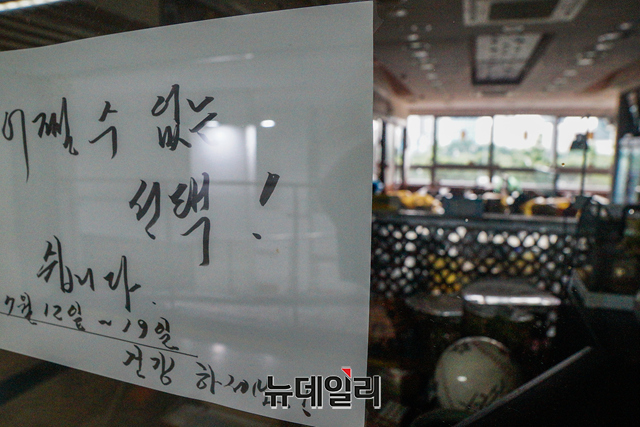 어쩔 수 없는
선택!
쉽니다.
7월 12일 ~ 19일
건강 하세요!
뉴데일리